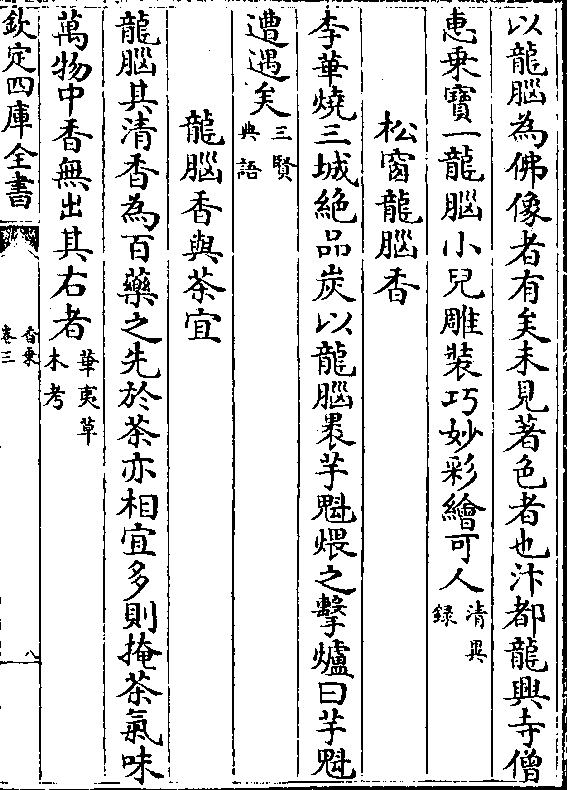 以龍腦為佛像者有矣未見著色者也汴都龍興寺僧
恵乗寶一龍腦小兒雕裝巧妙彩繪可人清異
録
松窗龍腦香
李華燒三城絶品炭以龍腦裹芋魁煨之擊爐曰芋魁
遭遇矣三賢
典語
龍腦香與茶宜
龍腦其清香為百藥之先於茶亦相宜多則掩茶氣味
萬物中香無出其右者華夷草
木考
欽定四庫全書
香乗
卷三
八